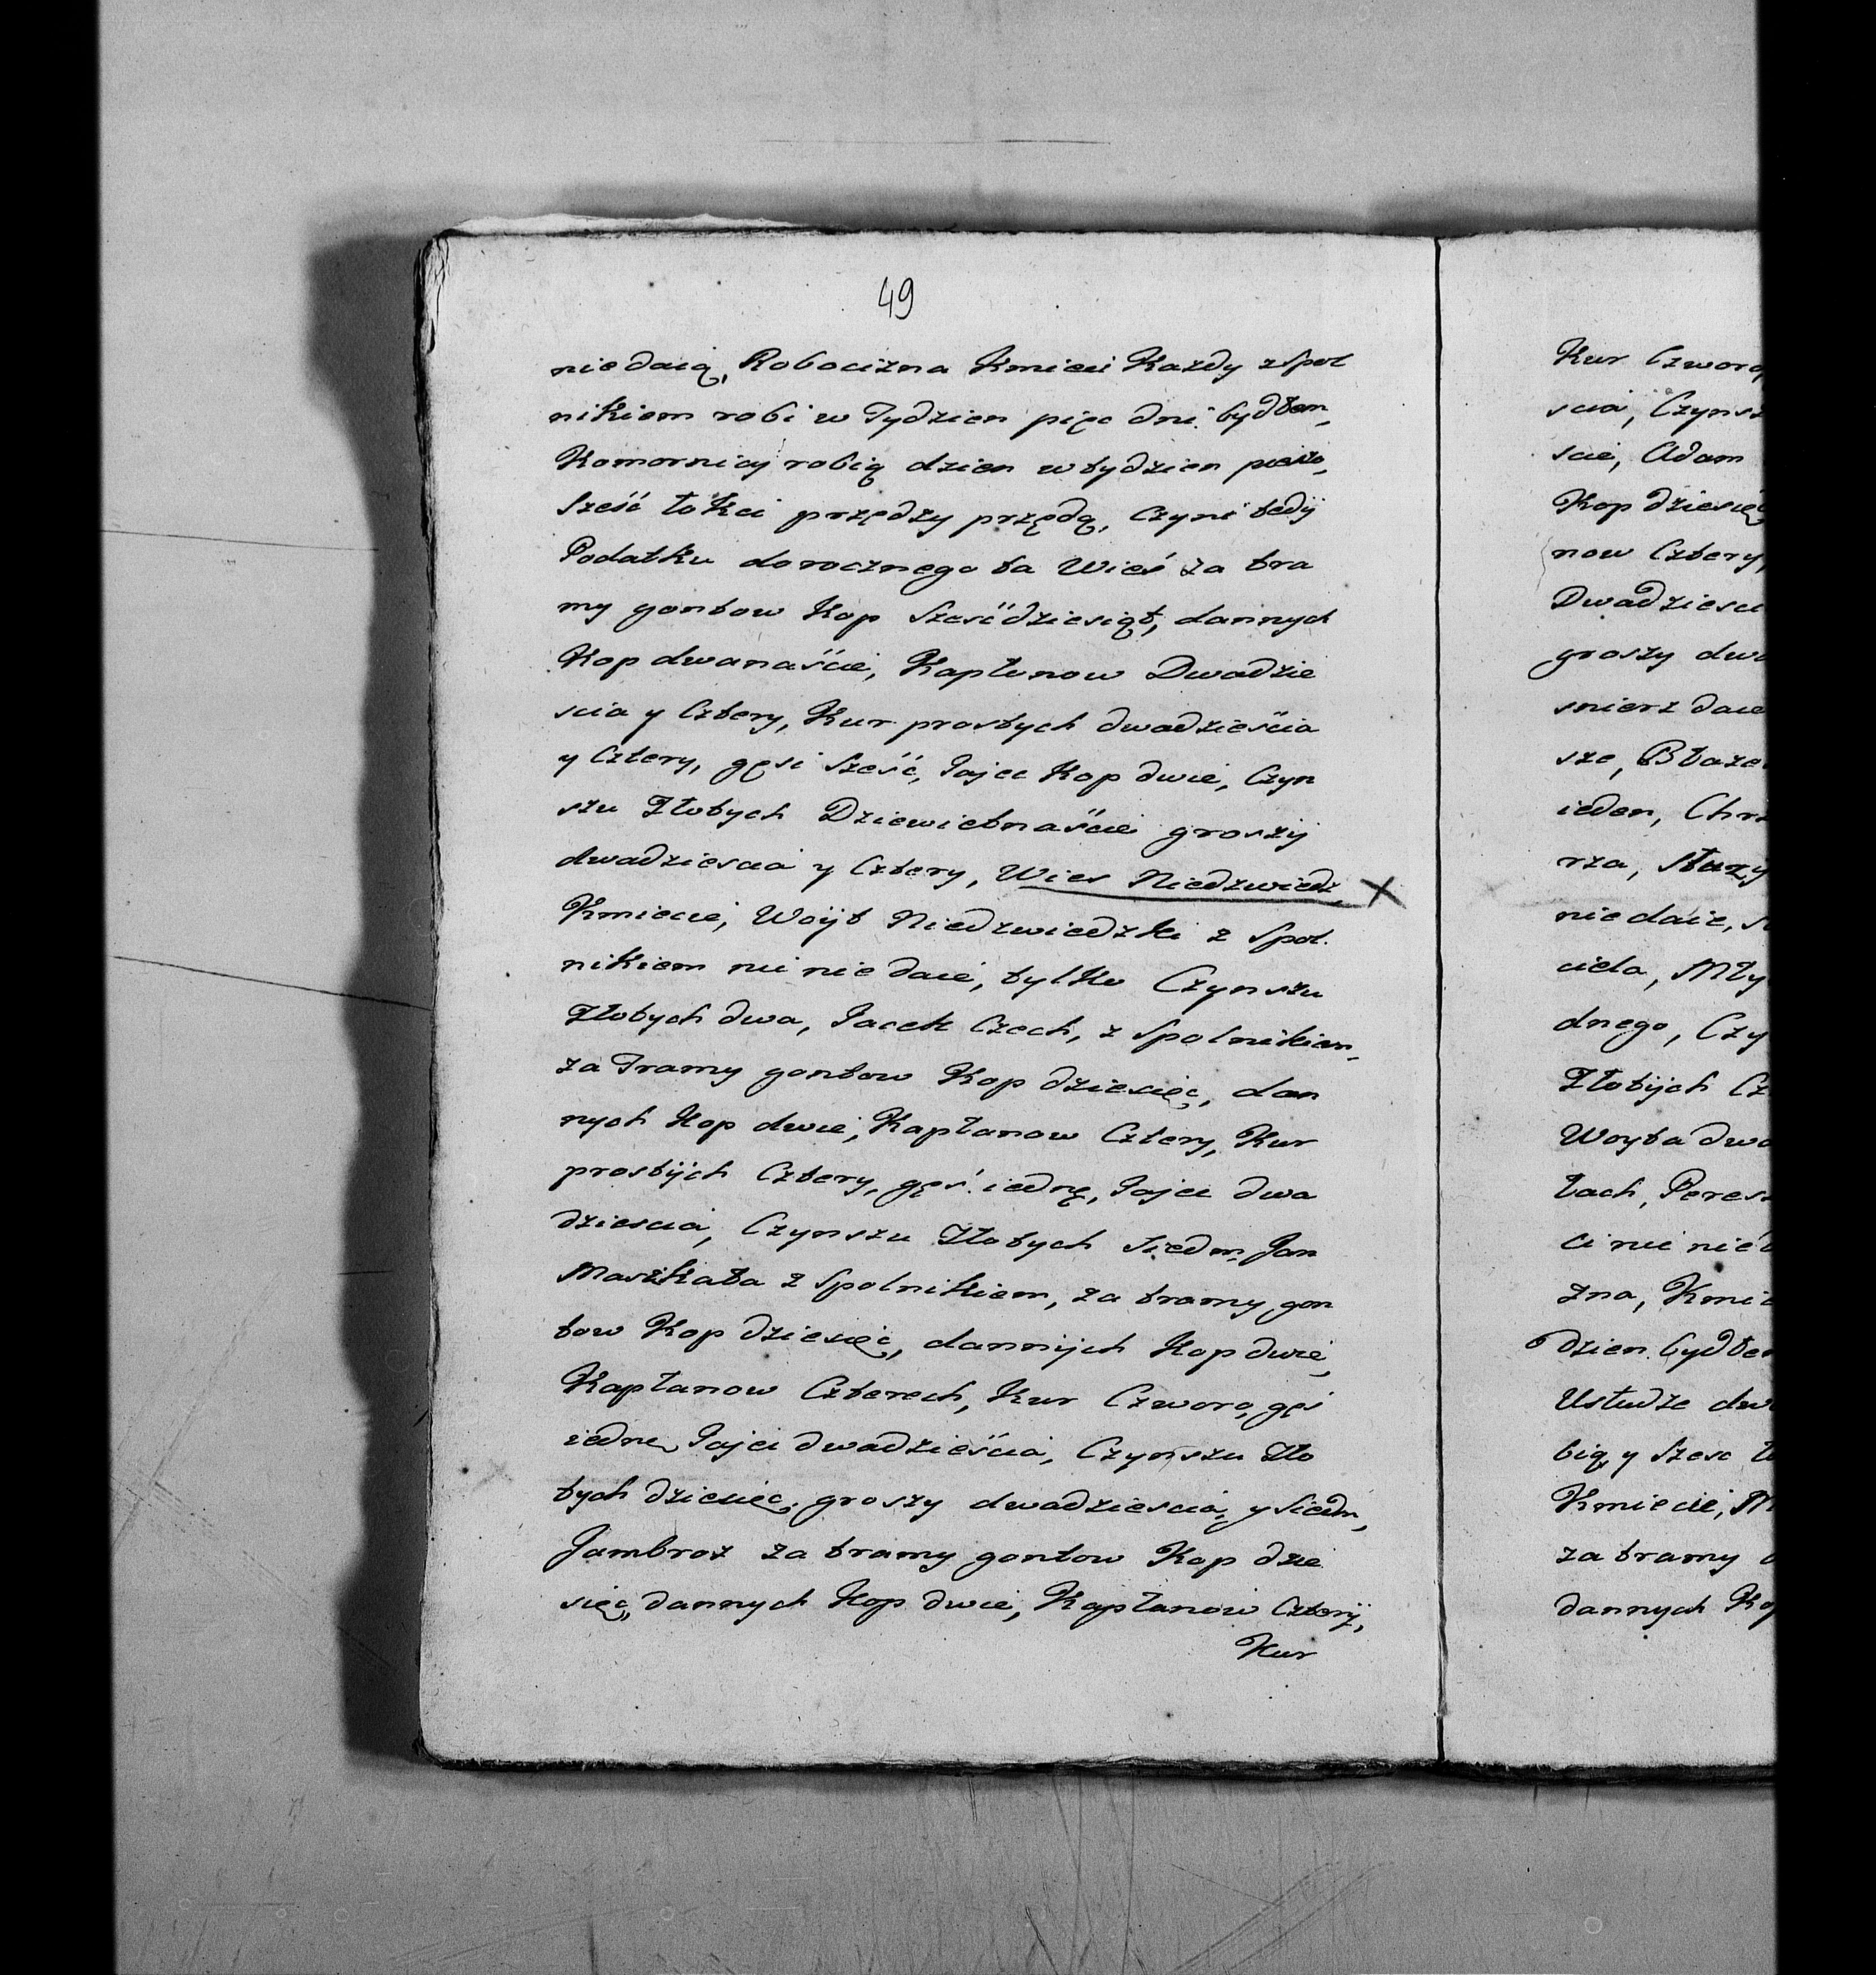 49
nie daią, Robocizna Kmieci Każdy z spol
nikiem robi w Tydzien pięc dni bydłem,
Komornicy robią dzien w tydzien pieszo,
Sześć łokci przędzy przędą, Czyni tedÿ
Podatku dorocznego ta Wieś za tra
my gontow Kop Sześćdziesiąt, dannych
Kop dwanaście, Kapłunow Dwadzie
scia y Cztery, Kur prostych dwadzieścia
y Cztery, gęsi Sześć, Jajec Kop dwie, Czyn
szu Złotych Dziewietnaście groszÿ
dwadziescia y Cztery, Wies Niedzwiedz X
Kmiecie, Woÿt Niedzwiedzki z Spol
nikiem nic nie daie, tylko Czynszu
Złotych dwa, Jacek Czech, z Spolnikiem,
za Tramy gontow Kop dziesięc, dan
nych Kop dwie, Kapłanow Cztery, Kur
prostÿch Cztery, gęś iednę, Jajec dwa
dziescia, Czynszu Złotych Siedm, Jan
Maszkata z Spolnikiem, za tramy gon
tow Kop dziesięc, dannÿch Kop dwie,
Kapłanow Czterech, Kur Czworo, gęs
iedne, Jajec dwadzieścia, Czynszu Zło
tych dziesięc groszy dwadziescia, y Siedm,
Jambroz za tramy gontow Kop dzie
sięc, dannych Kop dwie, Kapłanow Czterÿ,
Kur
Kur Czworo
scia, Czynsz
scie, Adam
Kop dziesięc
now Cztery,
Dwadziescia
groszy dwa
snierz daie
sze, Błaze
ieden, Chrz
rza, Stary
nie daie, s
ciela, Mły
dnego, Czy
Złotÿch Cz
Woyta dwa
łach, Peres
ci nic nie d
zna, Kmie
dzien bydłe
Usłudze dw
bią, y Szesc ł
Kmiecie, M
za tramy
dannych Kop